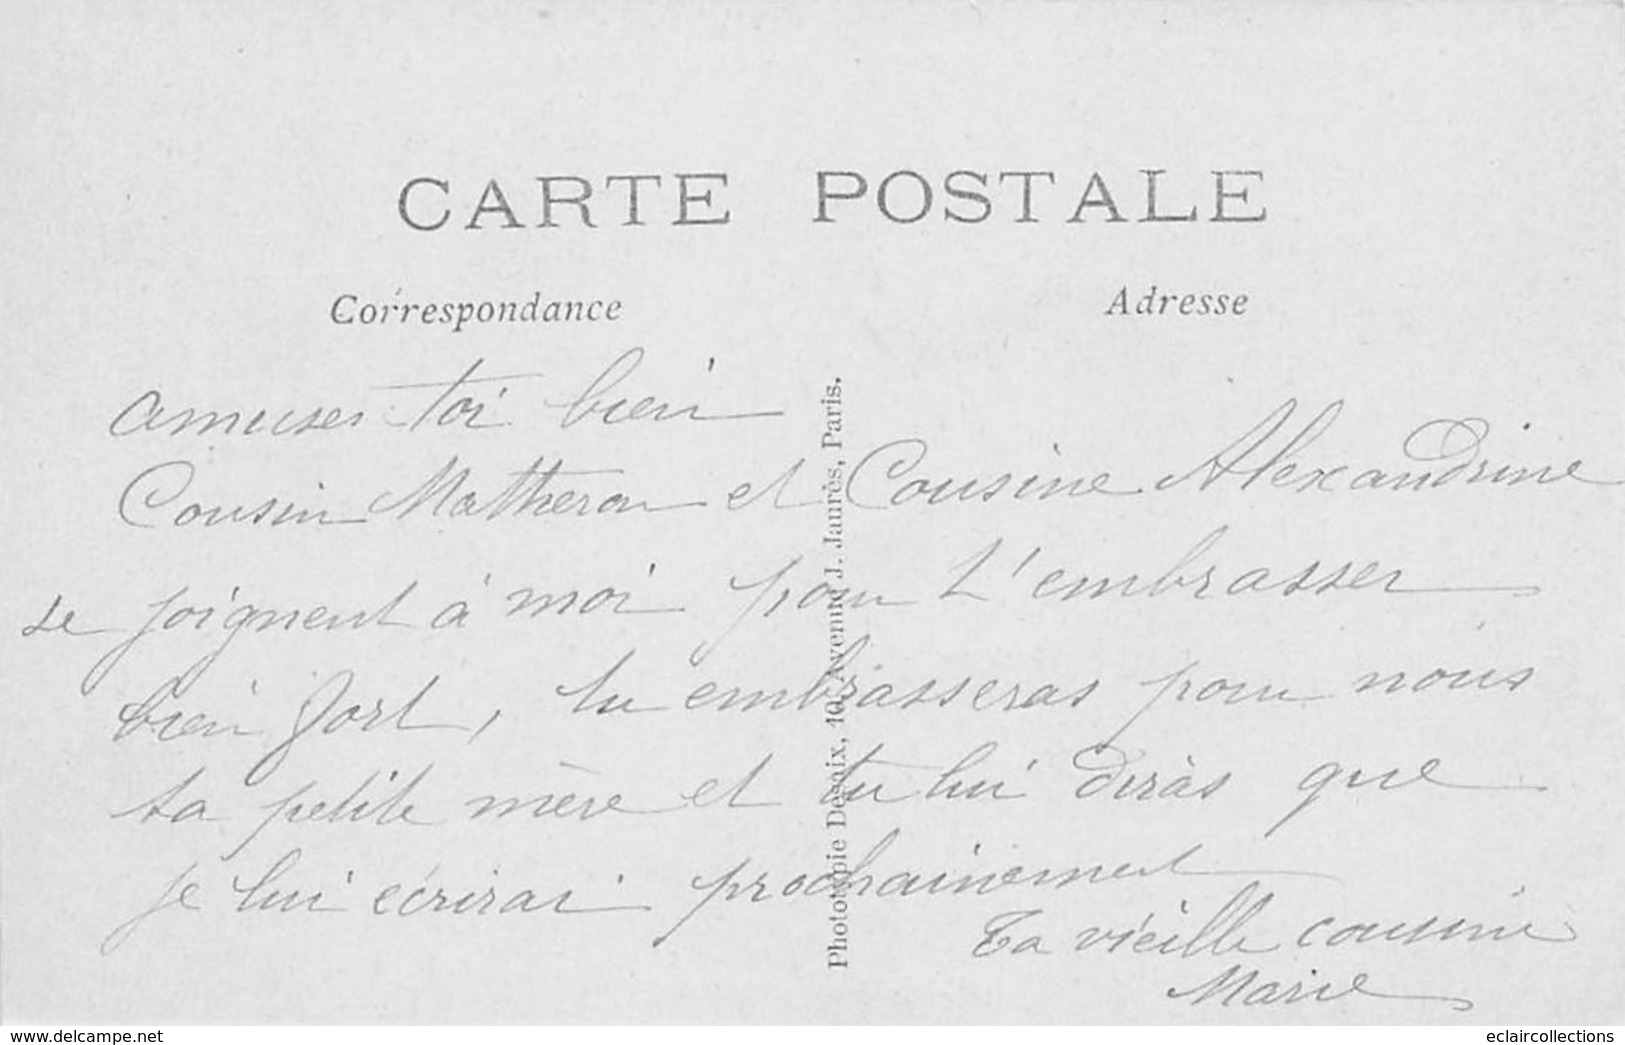 CARTE POSTALE
Correspondance
Adresse
amuser toi bien
Cousin Matheron et Cousine Alexandrine
se joignent à moi pour t'embrasser
bien fort, tu embrasseras pour nous
ta petite mère et tu lui diras que
je lui écrirai prochainement
Ta vieille cousine
Marie
Phototypie Desaix, 10, Avenue J. Jaurès, Paris.
www.delcampe.net
eclaircollections